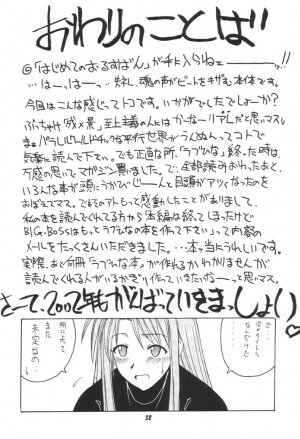 おわりのことば
◎「はじめてのおるすばん」が手に入らねェーーーーー!!
…はーっはーっ…失礼、魂の声がビートをキザむ本体です。
今回はこんな感じってトコです。いかがでしたでしょーか?
ぶっちゃけ「成×景」至上主義の人にはかーなーりだと思マス。
まぁパラレルワールドチックな平行世界がうんぬんってコトで
気楽に読んで下さい。でも正直な所、「ラブひな」終った時は、
万感の思いでマガジン買いました。で、全部読みおわったあと、
いろんな事が頭にうかびじーーんと目頭がアツくなったのを
おぼえてマス。でもそのアトもっと感動したことがありまして、
私の本を読んでくれてる方から「本編は終てしまったけど
BIG.BOSSはもっとラブひなの本を作って下さい」って内容の
メールをたくさんいただきました。…本っ当にうれしいです。
実際、あと何冊「ラブひな本」が作れるかわかりませんが
読んでくれる人がいるかぎり作っていきたいなーっと思マス。
さーって、2002年もがんばっていきまっしょい♡
で…
次のタイトル
なんだけど
例によって
また
未定なの…
38